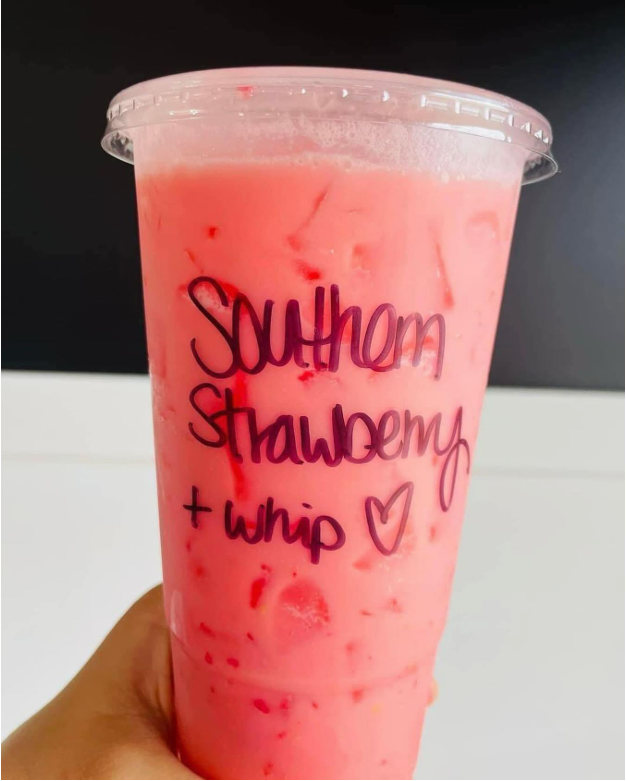 Southern
Strawberry
+ whip ♡